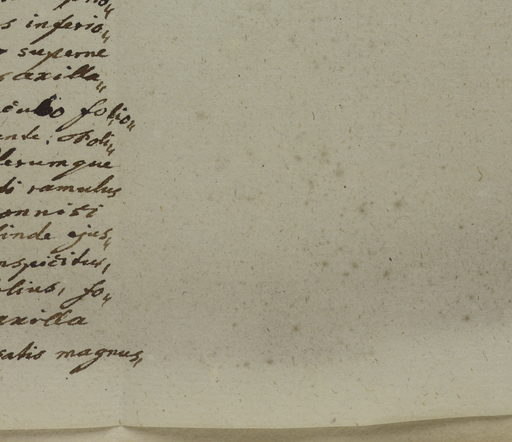 s inferio„
superne
axilla„
folio„
ende. Foli„
lerumque
di ramulus
onnisi
inde ejus„
nspicitur,
lius, fo„
axilla
satis magnus,